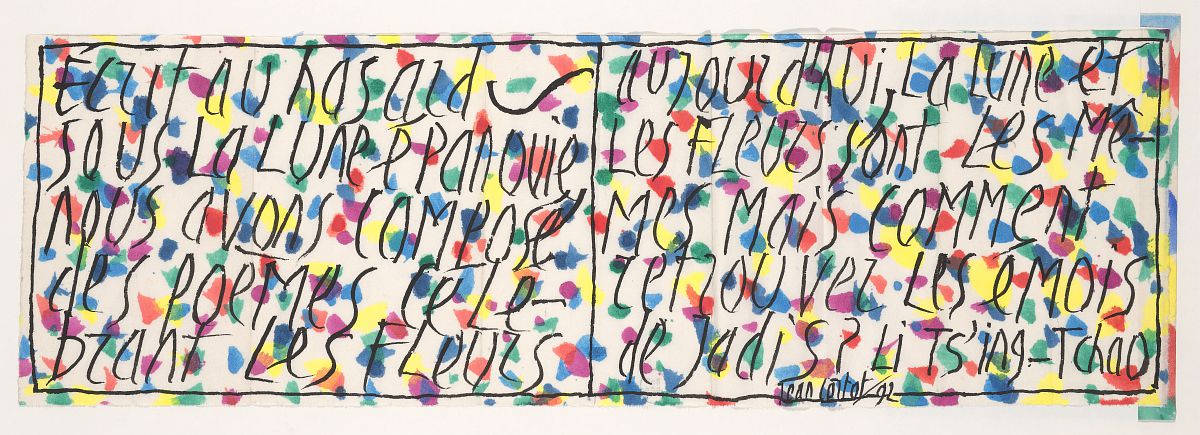 Ecrit au hasard
sous La LUNE epanouie
nous avons composé
des poemes ceLe-
brant Les FLeurs
aujourd'hui La LUNE et
Les FLeurs sont Les Mê-
Mes Mais comment
retrouver Les emois
de Jadis? Li Ts'ing-Tchao
Jean Cortot 92